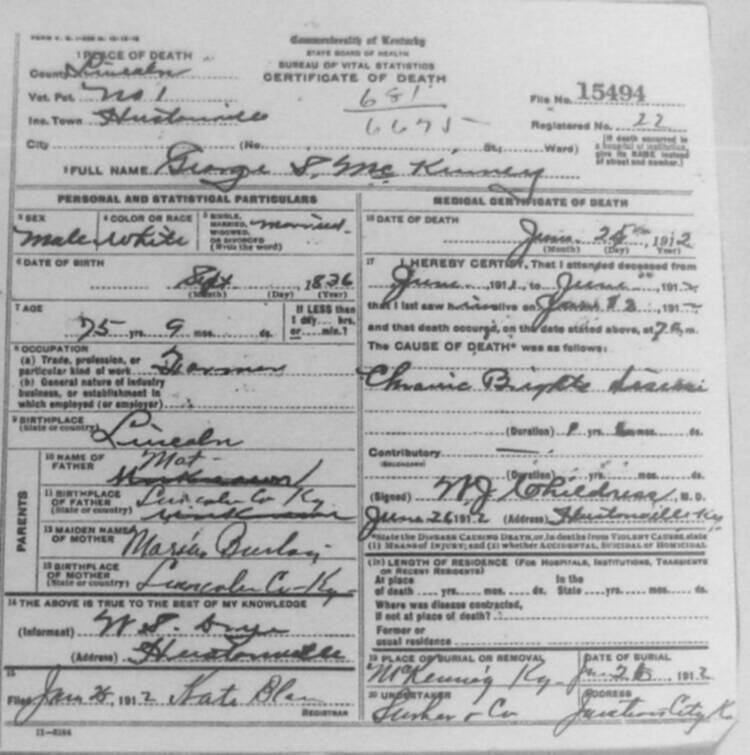 Commonwealth of Kentucky
STATE BOARD OF HEALTH
BUREAU OF VITAL STATISTICS
CERTIFICATE OF DEATH
1 PLACE OF DEATH
County Lincoln
Vot. Pct. No 1
Inc. Town Hustonville
City (No. St.; Ward)
681
6675
File No. 15494
Registered No. 22
[If death occurred in a hospital or institution, give its NAME instead of street and number.]
2 FULL NAME George S. McKinney
PERSONAL AND STATISTICAL PARTICULARS
3 SEX
Male
4 COLOR OR RACE
White
5 SINGLE, MARRIED, WIDOWED, OR DIVORCED (Write the word)
married
6 DATE OF BIRTH
Sept 1836
(Month) (Day) (Year)
7 AGE
75 yrs. 9 mos. ds.
If LESS than 1 day, hrs. or min.?
8 OCCUPATION
(a) Trade, profession, or particular kind of work Farmer
(b) General nature of industry business, or establishment in which employed (or employer)
9 BIRTHPLACE
(State or country) Lincoln
PARENTS
10 NAME OF FATHER
Mat
11 BIRTHPLACE OF FATHER
(State or country) Lincoln Co Ky
12 MAIDEN NAME OF MOTHER
13 BIRTHPLACE OF MOTHER
(State or country) Lincoln Co Ky
14 THE ABOVE IS TRUE TO THE BEST OF MY KNOWLEDGE
(Informant) W. S. Drye
(Address) Hustonville
15
Filed 1912 Kate
REGISTRAR
MEDICAL CERTIFICATE OF DEATH
16 DATE OF DEATH
June 1912
(Month) (Day) (Year)
17 I HEREBY CERTIFY, That I attended deceased from
June 191 to June 191
that I last saw him alive on 191
and that death occurred, on the date stated above, at 7 m.
The CAUSE OF DEATH* was as follows:
Chronic Brights disease
(Duration) yrs. mos. ds.
Contributory
(SECONDARY)
(Duration) yrs. mos. ds.
(Signed) W J Childress M. D.
June 26 1912 (Address) Hustonville Ky
*State the DISEASE CAUSING DEATH, or, in deaths from VIOLENT CAUSES, state (1) MEANS OF INJURY; and (2) whether ACCIDENTAL, SUICIDAL or HOMICIDAL.
18 LENGTH OF RESIDENCE (FOR HOSPITALS, INSTITUTIONS, TRANSIENTS OR RECENT RESIDENTS)
At place of death yrs. mos. ds. In the State yrs. mos. ds.
Where was disease contracted, if not at place of death?
Former or usual residence
19 PLACE OF BURIAL OR REMOVAL
McKinney Ky
DATE OF BURIAL
1912
20 UNDERTAKER
& Co
ADDRESS
Junction City K
11-3184